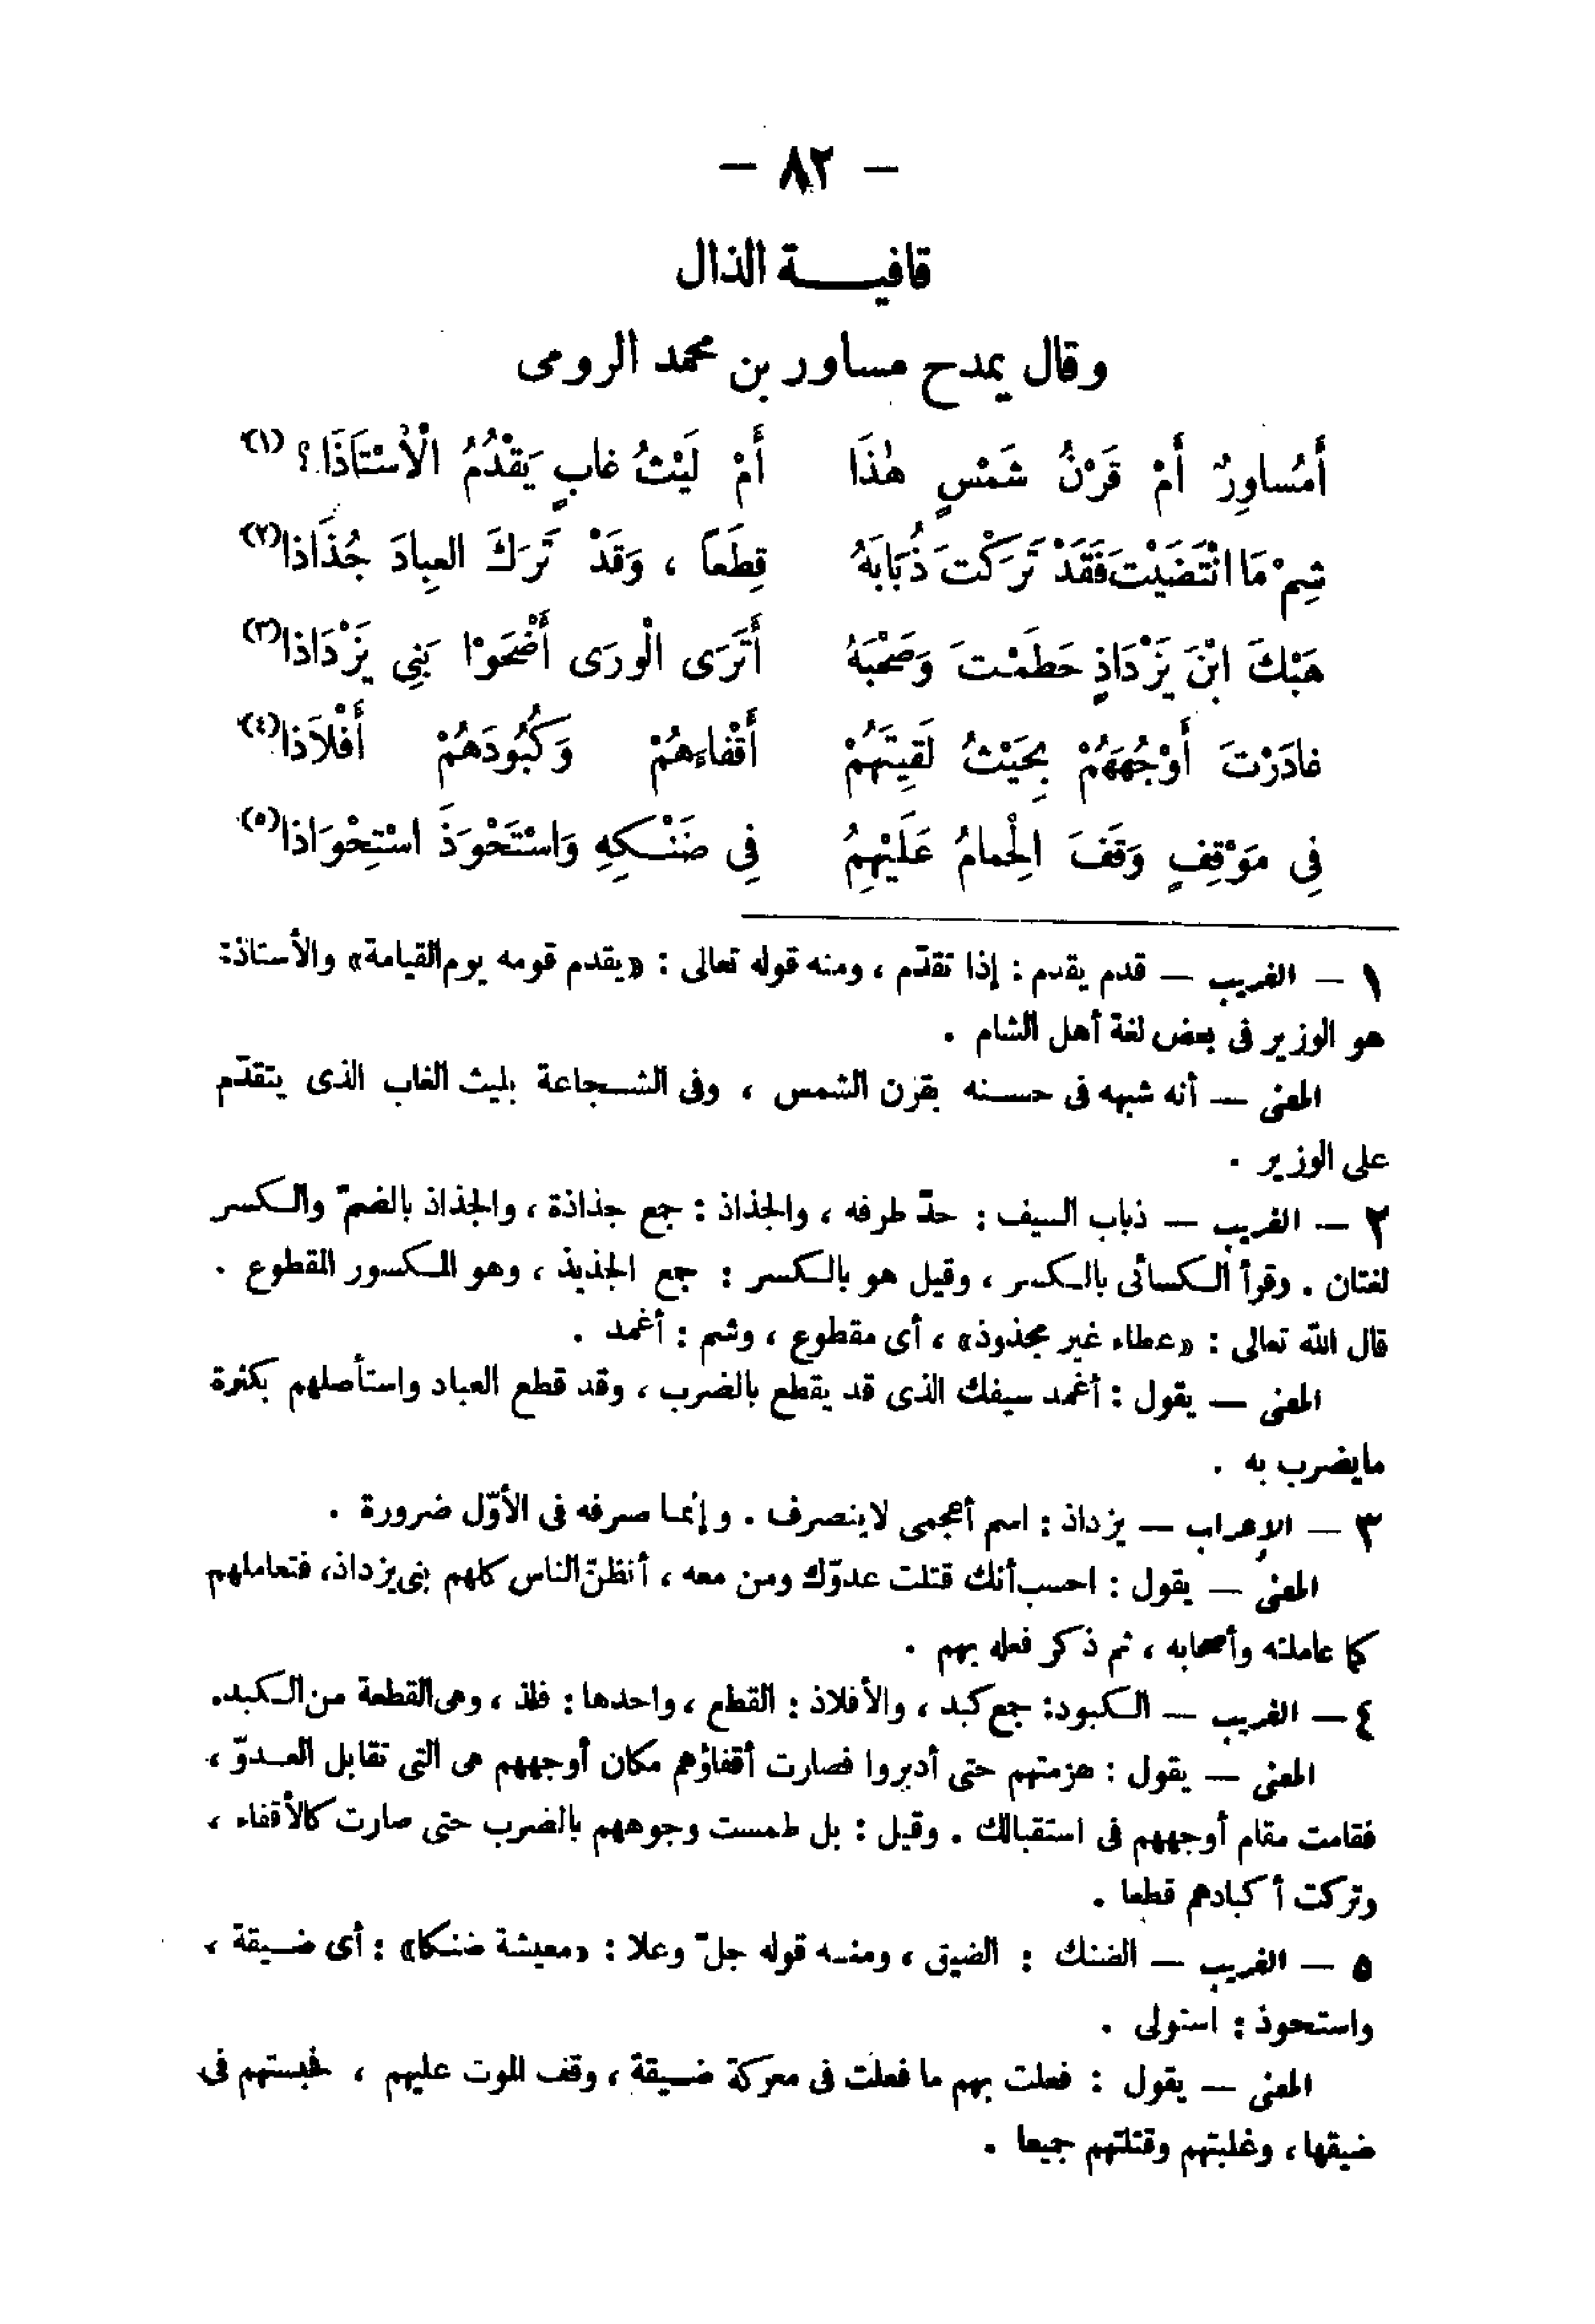 — ٨٢ —
قافيـــة الذال
وقال يمدح مساور بن محمد الرومى
أَمُساوِرٌ أَمْ قَرْنُ شَمْسٍ هٰذَا أَمْ لَيْثُ غابٍ يَقْدُمُ الْأُسْتَاذَا ؟ (١)
شِمْ مَا انْتَضَيْتَ فَقَدْ تَرَكْتَ ذُبَابَهُ قِطَعاً ، وَقَدْ تَرَكَ العِبادَ جُذَاذا (٢)
هَبْكَ ابْنَ يَزْدَاذٍ حَطَمْتَ وَصَحْبَهُ أَتَرَى الْوَرَى أَضْحَوْا بَنِي يَزْدَاذا (٣)
غادَرْتَ أَوْجُهَهُمْ بِحَيْثُ لَقِيتَهُمْ أَقْفاءَهُمْ وَكُبُودَهُمْ أَفْلاَذا (٤)
فِي مَوْقِفٍ وَقَفَ الْحِمامُ عَلَيْهِمُ فِي ضَنْـكِهِ وَاسْتَحْوَذَ اسْتِحْوَاذا (٥)
١ — الغريب — قدم يقدم : إذا تقدّم ، ومنه قوله تعالى : «يقدم قومه يوم القيامة» والأستاذ :
هو الوزير فى بعض لغة أهل الشام .
المعنى — أنه شبهه فى حسـنه بقرن الشمس ، وفى الشـجاعة بليث الغاب الذى يتقدّم
على الوزير .
٢ — الغريب — ذباب السيف : حدّ طرفه ، والجذاذ : جمع جذاذة ، والجذاذ بالضمّ والـكسر
لغتان . وقرأ الـكسائى بالـكسر ، وقيل هو بالـكسر : جمع الجذيذ ، وهو المـكسور المقطوع .
قال الله تعالى : «عطاء غير مجذوذ» ، أى مقطوع ، وشم : أغمد .
المعنى — يقول : أغمد سيفك الذى قد يقطع بالضرب ، وقد قطع العباد واستأصلهم بكثرة
مايضرب به .
٣ — الإعراب — يزداذ : اسم أعجمى لاينصرف . وإنما صرفه فى الأوّل ضرورة .
المعنى — يقول : احسب أنك قتلت عدوّك ومن معه ، أتظنّ الناس كلهم بنى يزداذ ، فتعاملهم
كما عاملته وأصحابه ، ثم ذكر فعله بهم .
٤ — الغريب — الـكبود : جمع كبد ، والأفلاذ : القطع ، واحدها : فلذ ، وهى القطعة من الـكبد.
المعنى — يقول : هزمتهم حتى أدبروا فصارت أقفاؤهم مكان أوجههم هى التى تقابل العـدوّ ،
فقامت مقام أوجههم فى استقبالك . وقيل : بل طمست وجوههم بالضرب حتى صارت كالأقفاء ،
وتركت أكبادهم قطعا .
٥ — الغريب — الضنك : الضيق ، ومنـه قوله جلّ وعلا : «معيشة ضنـكا» : أى ضـيقة ،
واستحوذ : استولى .
المعنى — يقول : فعلت بهم ما فعلت فى معركة ضـيقة ، وقف الموت عليهم ، فحبستهم فى
ضيقها ، وغلبتهم وقتلتهم جميعا .